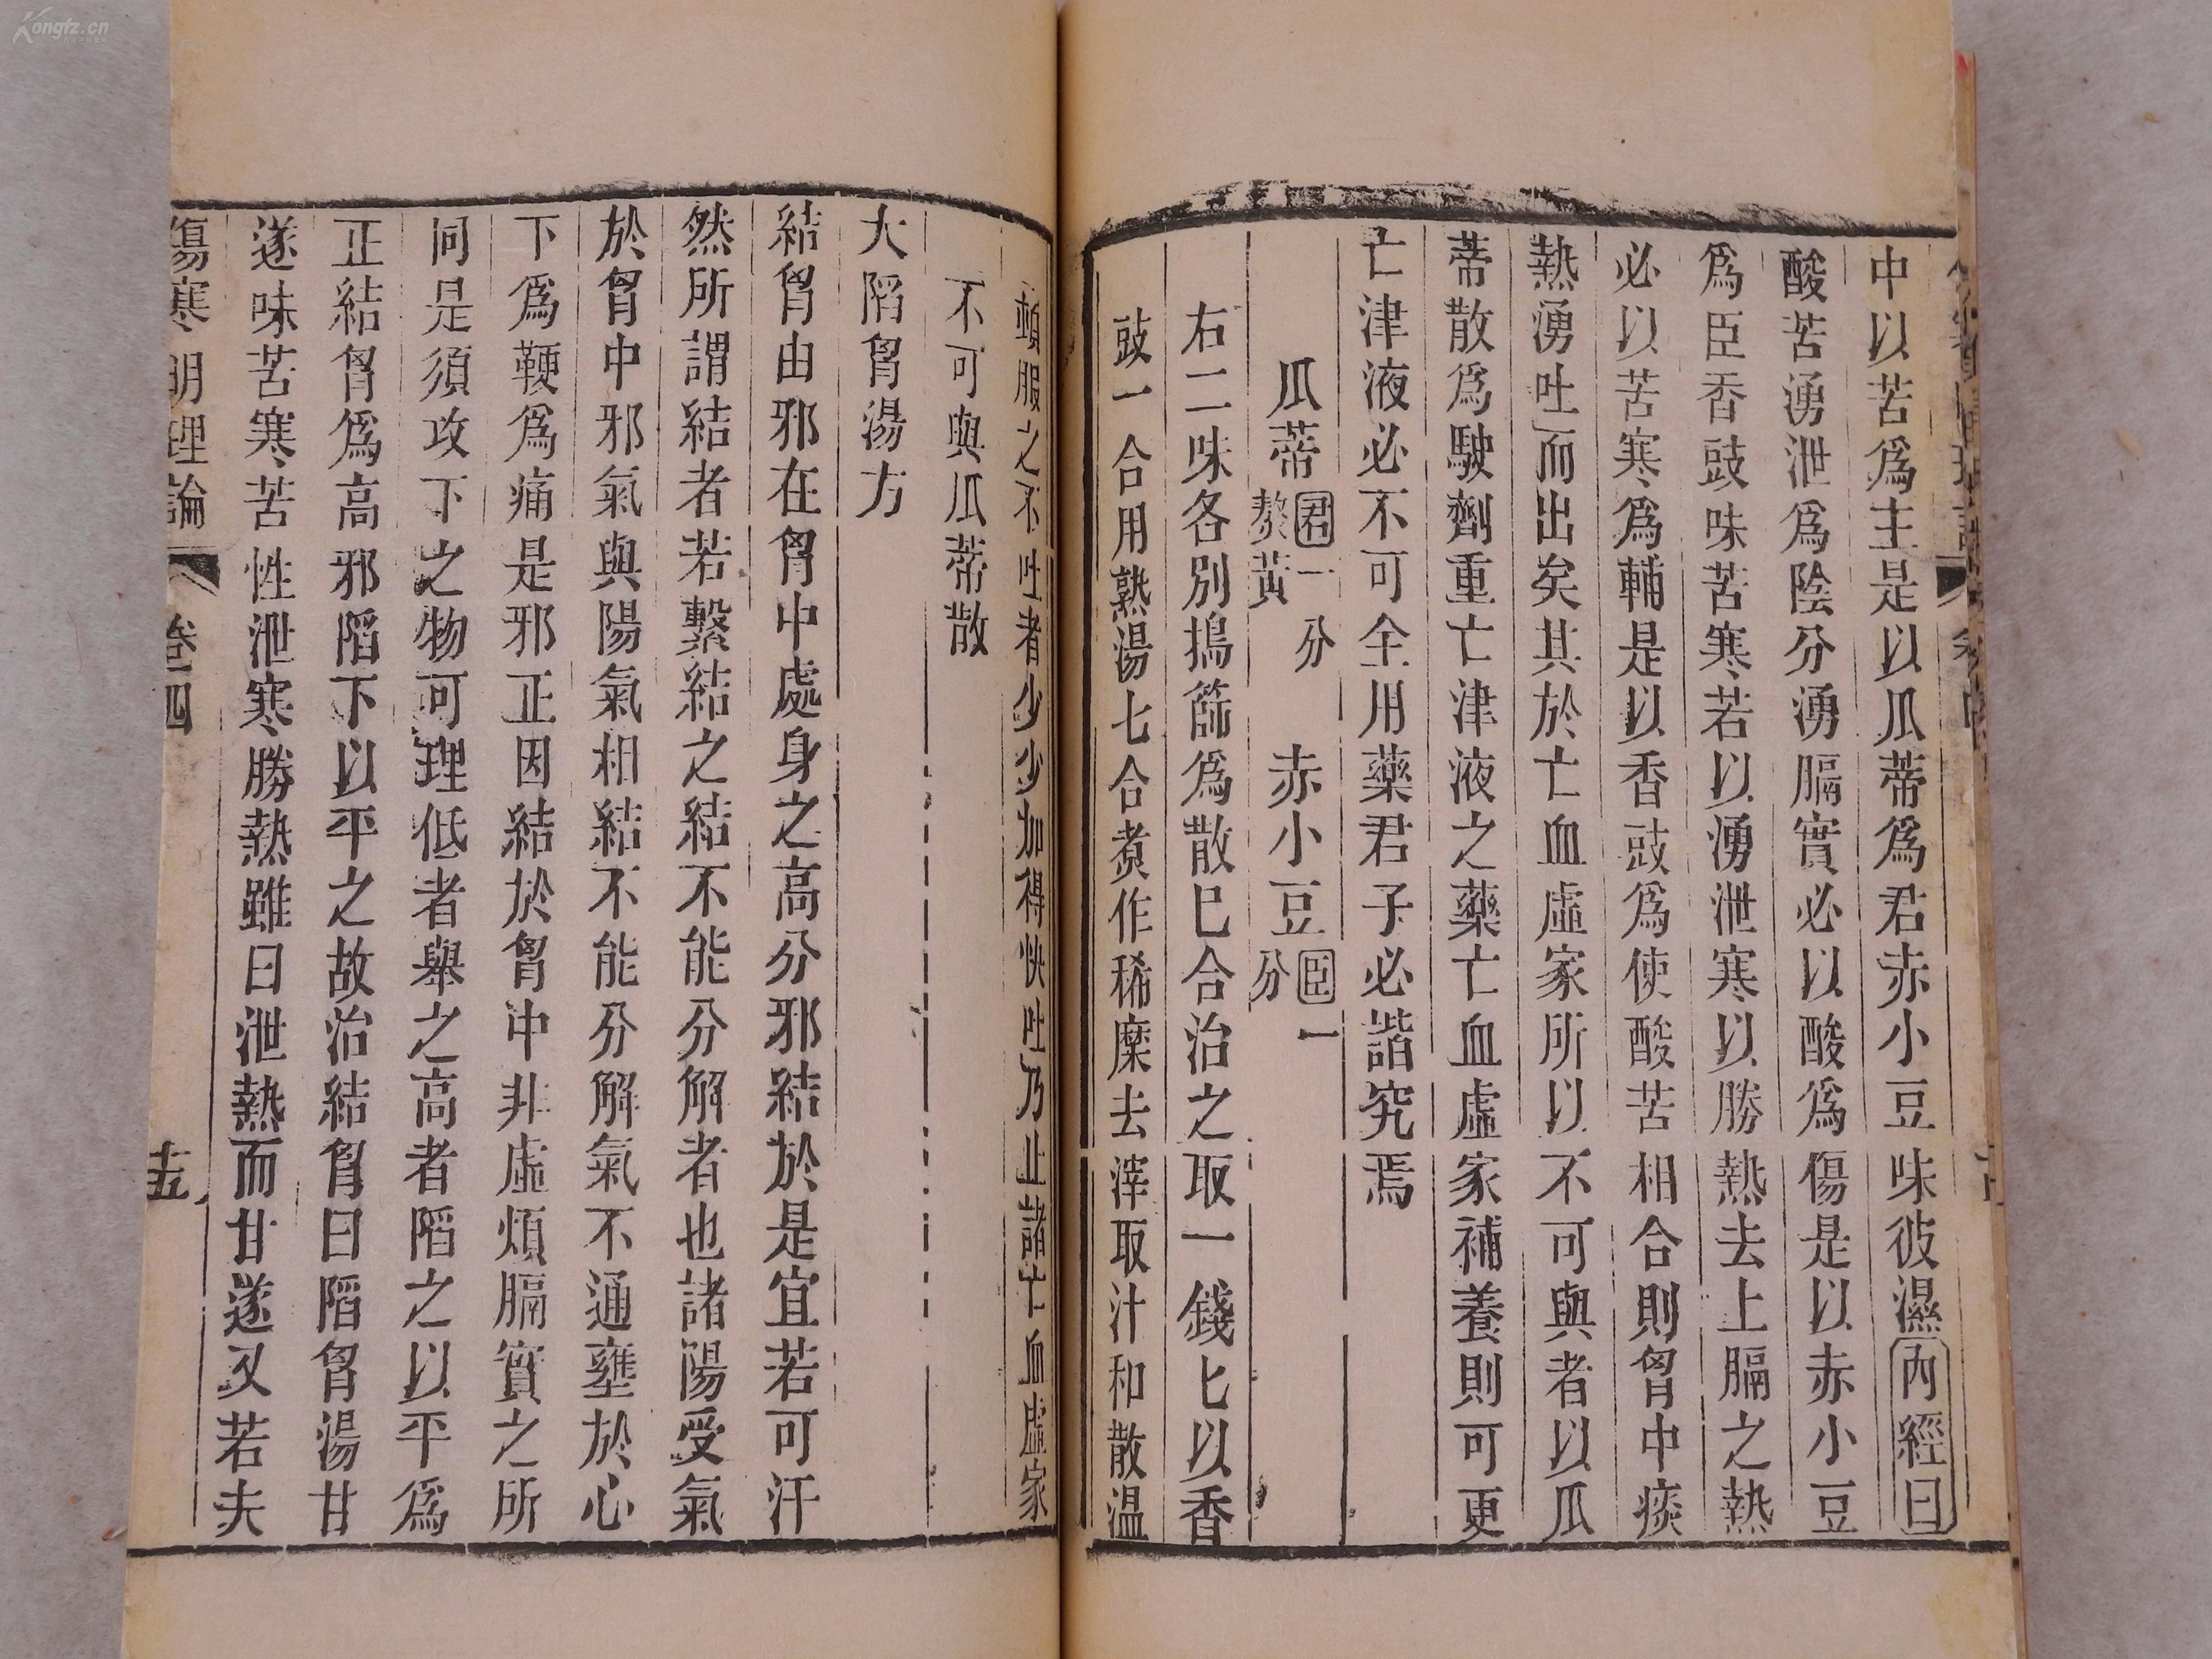 Kongfz.cn
中以苦爲主是以瓜蒂爲君赤小豆味彼濕內經曰
酸苦湧泄爲陰分湧膈實必以酸爲傷是以赤小豆
爲臣香豉味苦寒若以湧泄寒以勝熱去上膈之熱
必以苦寒爲輔是以香豉爲使酸苦相合則胷中痰
熱湧吐而出矣其於亡血虛家所以不可與者以瓜
蒂散爲駛劑重亡津液之藥亡血虛家補養則可更
亡津液必不可全用藥君子必諧究焉
瓜蒂君一分熬黃 赤小豆臣一分
右二味各別搗篩爲散已合治之取一錢匕以香
豉一合用熟湯七合煑作稀糜去滓取汁和散温
頓服之不吐者少少加得快吐乃止諸亡血虛家
不可與瓜蒂散
大䧟胷湯方
結胷由邪在胷中處身之高分邪結於是宜若可汗
然所謂結者若繫結之結不能分解者也諸陽受氣
於胷中邪氣與陽氣相結不能分解氣不通壅於心
下爲鞕爲痛是邪正因結於胷中非虛煩膈實之所
同是須攻下之物可理低者舉之高者䧟之以平爲
正結胷爲高邪䧟下以平之故治結胷曰䧟胷湯甘
遂味苦寒苦性泄寒勝熱雖曰泄熱而甘遂又若夫
傷寒明理論 卷四 十五